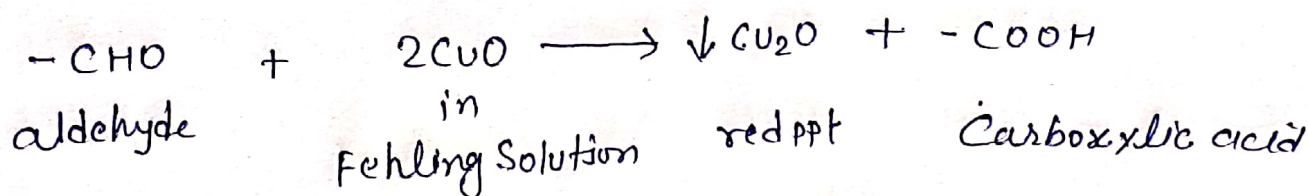 -CHO + 2CuO ⟶ ↓ Cu₂O + -COOH
aldehyde in Fehling Solution red ppt Carboxylic acid